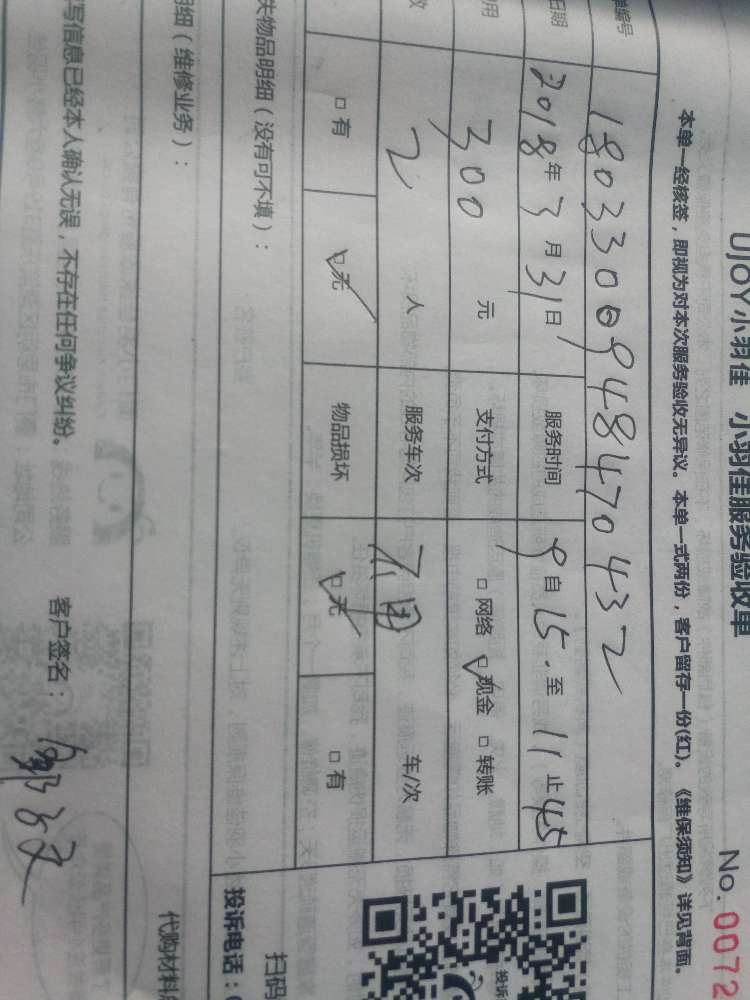 UJOY小羽佳 小羽佳服务验收单
No.0072
本单一经核签，即视为对本次服务验收无异议。本单一式两份，客户留存一份(红)。《维保须知》详见背面。
单编号 1803300948470432
日期 2018年3月31日 服务时间 9自15.至11止45
用 300 元 支付方式 □网络 ☑现金 □转账
数 2 人 服务车次 不用 车/次
□有 ☑无 物品损坏 ☑无 □有
失物品明细（没有可不填）：
投诉
扫码
投诉电话：
明细（维修业务）：
代购材料
写信息已经本人确认无误，不存在任何争议纠纷。 客户签名：